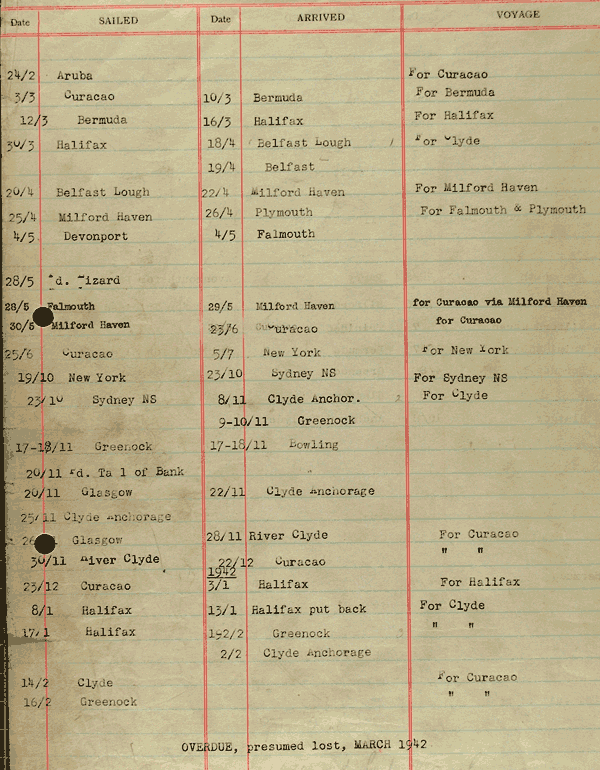 Date SAILED Date ARRIVED VOYAGE
24/2 Aruba For Curacao
3/3 Curacao 10/3 Bermuda For Bermuda
12/3 Bermuda 16/3 Halifax For Halifax
30/3 Halifax 18/4 Belfast Lough For Clyde
19/4 Belfast
20/4 Belfast Lough 22/4 Milford Haven For Milford Haven
25/4 Milford Haven 26/4 Plymouth For Falmouth & Plymouth
4/5 Devonport 4/5 Falmouth
28/5 d. izard
28/5 Falmouth 29/5 Milford Haven for Curacao via Milford Haven
30/5 Milford Haven 23/6 Curacao for Curacao
25/6 Curacao 5/7 New York For New York
19/10 New York 23/10 Sydney NS For Sydney NS
23/10 Sydney NS 8/11 Clyde Anchor. For Clyde
9-10/11 Greenock
17-18/11 Greenock 17-18/11 Bowling
20/11 d. Ta l of Bank
20/11 Glasgow 22/11 Clyde Anchorage
25/11 Clyde Anchorage
Glasgow 28/11 River Clyde For Curacao
30/11 River Clyde 22/12 Curacao " "
1942
23/12 Curacao 3/1 Halifax For Halifax
8/1 Halifax 13/1 Halifax put back For Clyde
17/1 Halifax 192/2 Greenock " "
2/2 Clyde Anchorage
14/2 Clyde For Curacao
16/2 Greenock " "
OVERDUE, presumed lost, MARCH 1942